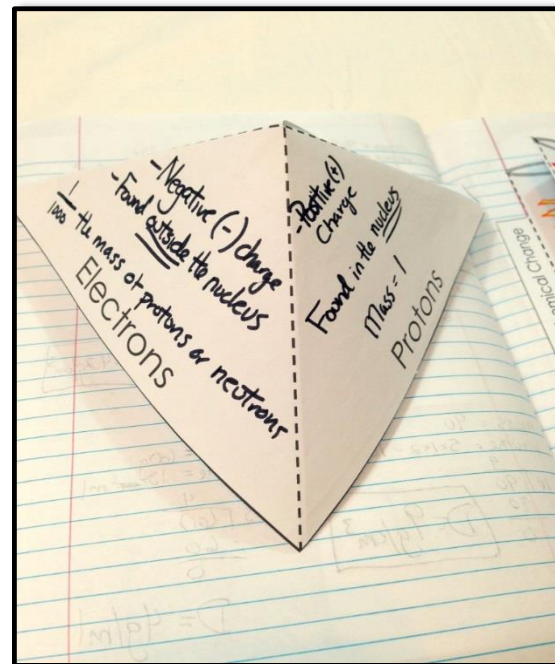 -Negative (-) charge
-Found outside the nucleus
1/1000 the mass of protons or neutrons
Electrons
-Positive (+)
Charge
Found in the nucleus
Mass = 1
Protons
mical Change
D = 9g/cm³
D = 4g/ml